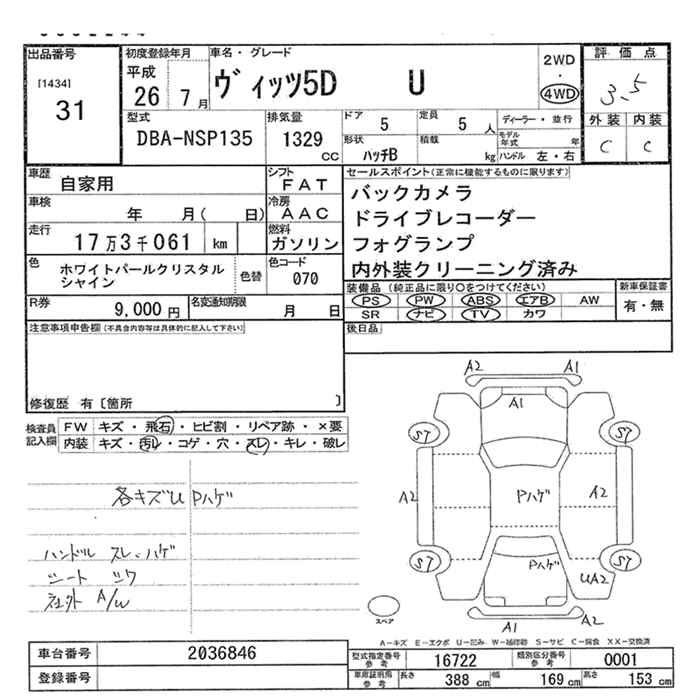 出品番号
[1434]
31
初度登録年月
平成
26 7 月
車名・グレード
ヴィッツ5D U
2WD
・
4WD
評価点
3.5
外装 内装
C C
型式
DBA-NSP135
排気量
1329
cc
ドア
5
定員
5 人
ディーラー・並行
形状
ハッチB
積載
kg
モデル
年式
年
ハンドル 左・右
車歴
自家用
シフト
FAT
車検
年 月( 日)
冷房
AAC
走行
17万3千061 km
燃料
ガソリン
色
ホワイトパールクリスタル
シャイン
色替
色コード
070
R券
9,000 円
名変通知期限
月 日
セールスポイント(正常に機能するものに限ります)
バックカメラ
ドライブレコーダー
フォグランプ
内外装クリーニング済み
装備品 (純正品に限り○をつけてください)
PS PW ABS エアB AW
SR ナビ TV カワ
新車保証書
有・無
後日品
注意事項申告欄(不具合内容等は具体的に記入して下さい)
修復歴 有〔箇所 〕
検査員
記入欄
FW キズ・飛石・ヒビ割・リペア跡・×要
内装 キズ・汚れ・コゲ・穴・スレ・キレ・破レ
各キズU Pハゲ
ハンドル スレ・ハゲ
シート シワ
社外 A/W
A2 A1
A1
S7 S7
A2 Pハゲ A2
S7 S7
Pハゲ
UA2
A1 A2
スペア
A-キズ E-エクボ U-凹み W-補修跡 S-サビ C-腐食 XX-交換済
車台番号 2036846
登録番号
型式指定番号
参考
16722
類別区分番号
参考
0001
車庫証明用
参考
長さ 388 cm 幅 169 cm 高さ 153 cm